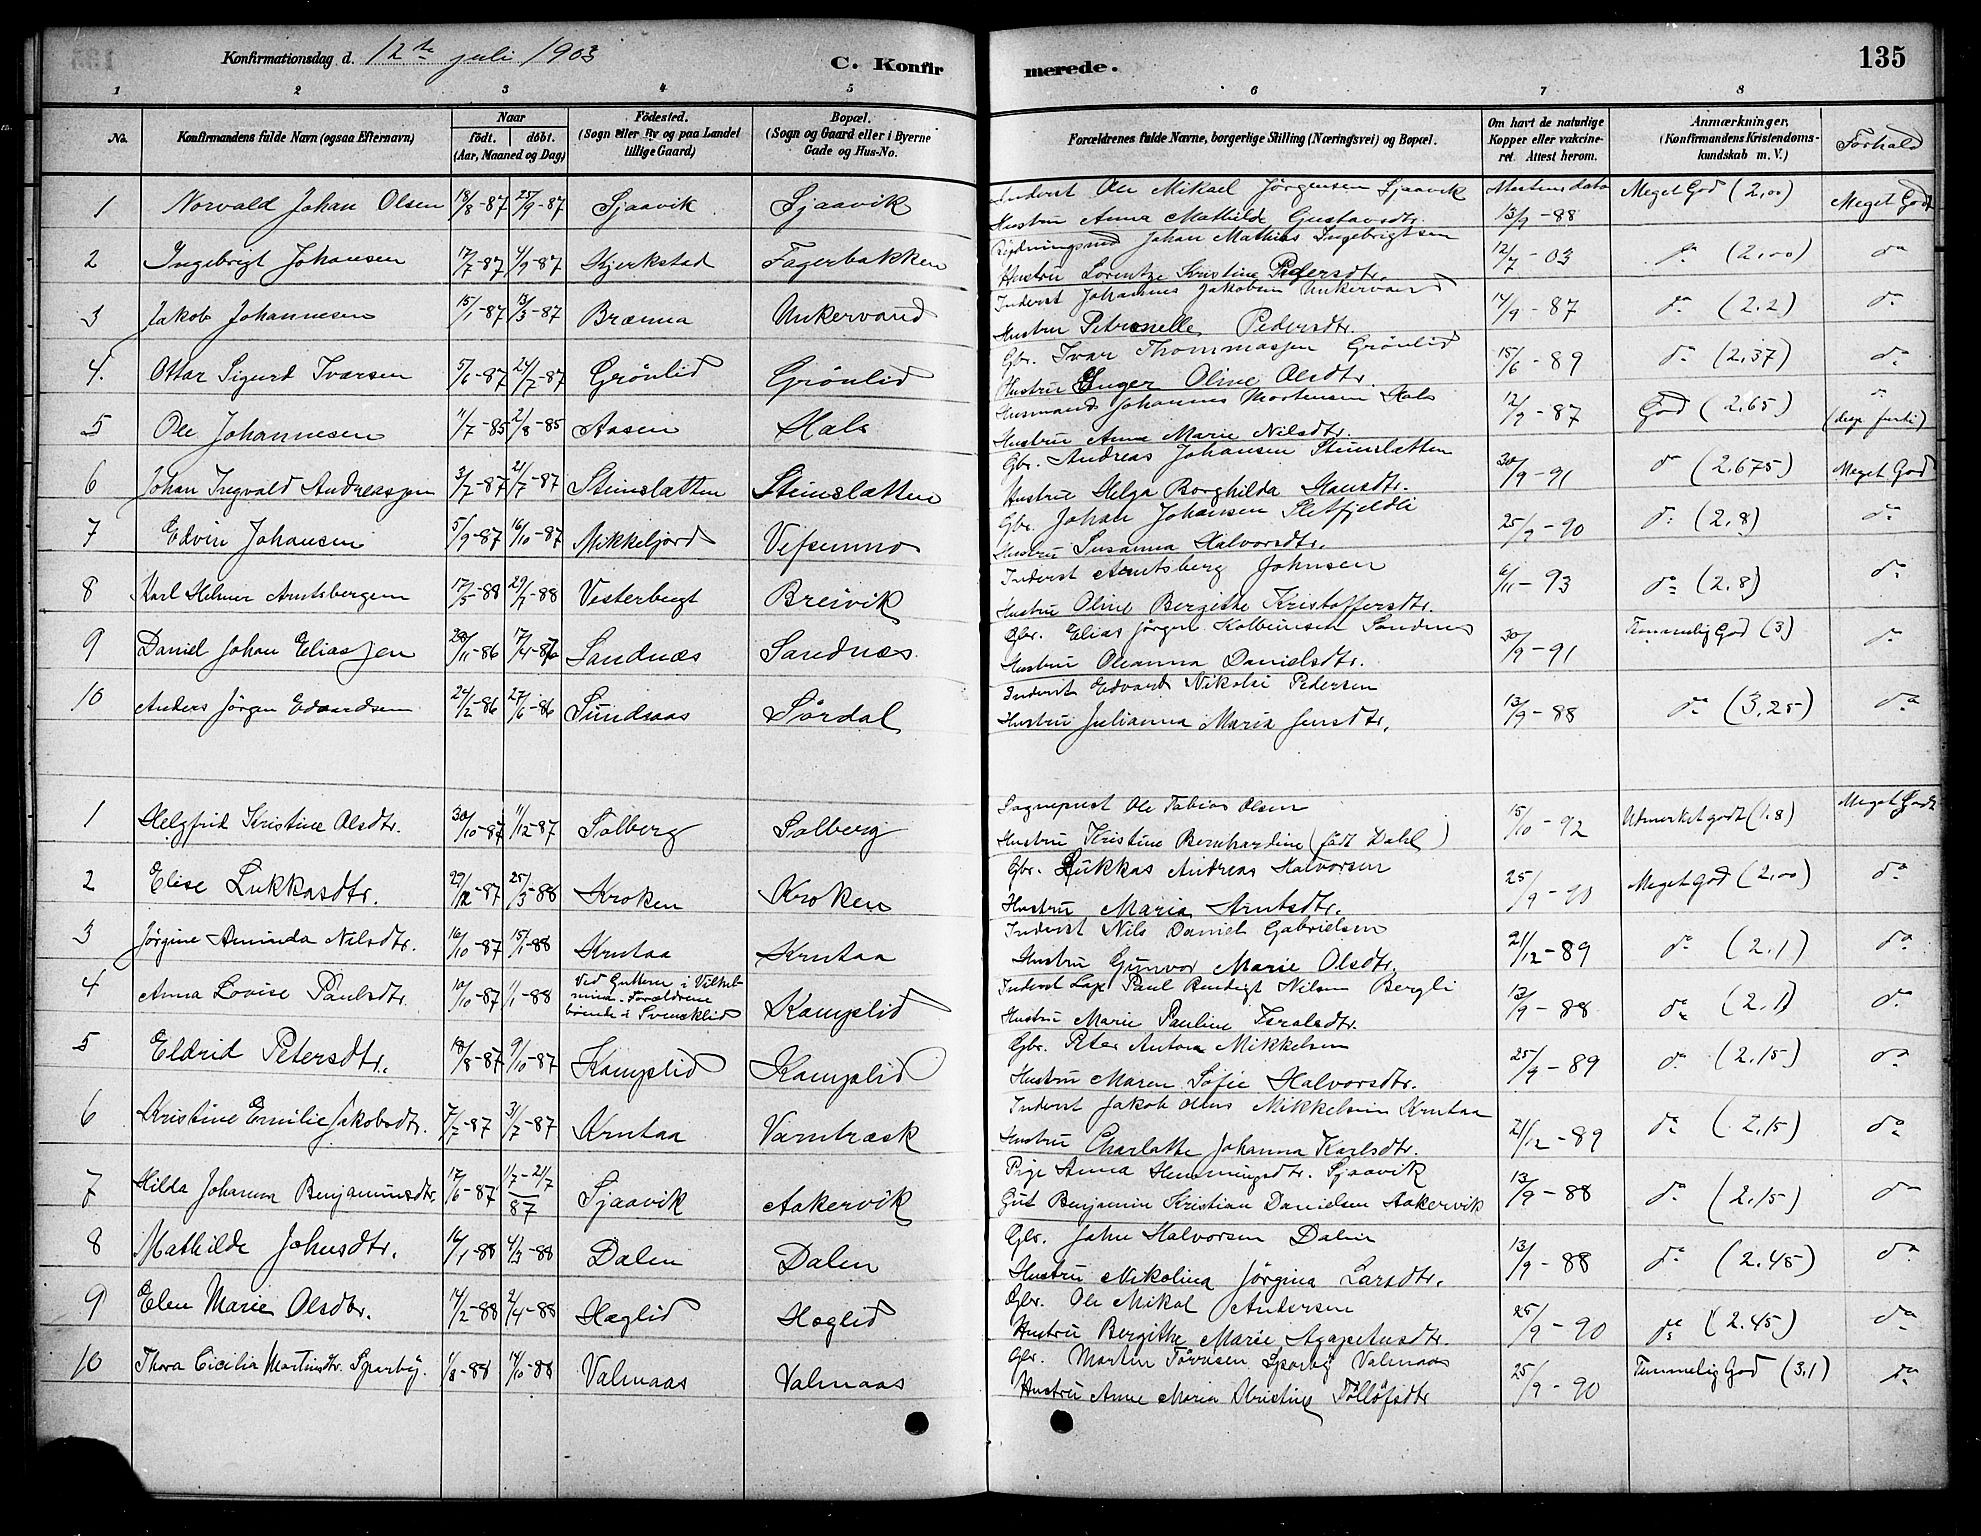 Konfirmationsdag d. 12te juli 1903
C. Konfirmerede.
135
1 2 3 4 5 6 7 8
No. Konfirmandens fulde Navn (ogsaa Efternavn) Naar født. døbt. (Aar, Maaned og Dag) Fødested. (Sogn eller By og paa Landet tillige Gaard) Bopæl. (Sogn og Gaard eller i Byerne Gade og Hus-No. Forældrenes fulde Navne, borgerlige Stilling (Næringsvei) og Bopæl. Om havt de naturlige Kopper eller vakcineret. Attest herom. Anmærkninger, (Konfirmandens Kristendomskundskab m. V.) Forhold
1 Norvald Johan Olsen 18/8-87 25/9-87 Sjaavik Sjaavik Inderst Ole Mikael Jörgensen Sjaavik Meget God (2,00) Meget Godt
Hustru Anna Mathilde Gustavsdtr. 13/9-88
2 Ingebrigt Johansen 17/7-87 4/9-87 Kjerkstad Fagerbakken Johan Mathias Ingebrigtsen 12/7-03 do (2,00) do
Hustru Lorentze Kristine Pedersdtr.
3 Jakob Johannesen 15/1-87 13/3-87 Brænna Unkervand Inderst Johannes Jakobsen Unkervand 14/9-87 do (2.2) do
Hustru Petronelle Pedersdtr.
4. Ottar Sigurd Ivarsen 5/6-87 24/7-87 Grönlid Grönlid Gbr. Ivar Thommassen Grönlid 15/6-89 do (2,37) do
Hustru Inger Oline Olsdtr.
5 Ole Johannesen 11/7-85 2/8-85 Aasen Hals Husmand Johannes Mortensen Hals 12/9-87 God (2.65) do
Hustru Anna Marie Nilsdtr.
6 Johan Ingvald Andreassen 3/7-87 21/7-87 Stenslætten Stenslætten Gbr. Andreas Johansen Stenslætten 30/9-91 do (2.675) Meget God
Hustru Helga Borghilda Hansdtr.
7 Edvin Johansen 5/9-87 16/10-87 Mikkeljord Vefsenmo Gbr. Johan Johansen Sletfjeldli 25/9-90 do (2,8) do
Hustru Susanna Halvorsdtr.
8 Karl Helmer Arntsbergsen 17/3-88 29/7-88 Vesterbugt Breivik Inderst Arntsberg Johnsen 6/11-93 do (2,8) do
Hustru Oline Bergithe Kristoffersdtr.
9 Daniel Johan Eliassen Sandnæs Sandnæs Gbr. Elias Jörgen Kolbeinsen Sandnes 30/9-91 Temmelig God (3) do
Hustru Oleanna Danielsdtr.
10 Anders Jörgen Edvardsen 24/2-86 27/6-86 Sundsaas Sördal Inderst Edvard Nikolai Pedersen 13/9-88 do (3,25) do
Hustru Julianna Maria Jensdtr.
1 Helgfrid Kristine Olsdtr. 30/10-87 11/12-87 Solberg Solberg Sogneprest Ole Tobias Olsen 15/10-92 Udmerket godt (1.8) Meget Godt
Hustru Kristine Bernhardine (født Dahl)
2 Elise Lukkasdtr. 29/12-87 25/3-88 Kroken Kroken Gbr. Lukkas Andreas Halvorsen 25/9-90 Meget God (2,00) do
Hustru Maria Arntsdtr.
3 Jörgine Aminda Nilsdtr. 16/10-87 15/1-88 Krutaa Krutaa Inderst Nils Daniel Gabrielsen 21/12-89 do (2.1) do
Hustru Gunvor Marie Olsdtr.
4 Anna Lovise Paulsdtr. 10/10-87 1/1-88 Ved Guttern i Vilhelmina. Forældrene boende i Svensklid Kamplid Inderst Lap Paul Bendigt Nilsen Bergli 13/9-88 do (2.1) do
Hustru Marie Pauline Israelsdtr.
5 Eldrid Petersdtr. 18/8-87 9/10-87 Kamplid Kamplid Gbr. Peter Anton Mikkelsen 25/9-89 do (2.15) do
Hustru Maren Sofie Halvorsdtr.
6 Kristine Emilie Jakobsdtr. 7/7-87 31/7-87 Krutaa Vamtræsk Inderst Jakob Mikkelsen Krutaa 21/12-89 do (2,15) do
Hustru Charlotte Johanna Karlsdtr.
7 Hilda Johanna Benjaminsdtr. 17/6-87 1/7-21/7 87 Sjaavik Aakervik Pige Anna Hemmingsdtr. Sjaavik 13/9-88 do (2.15) do
Gut Benjamin Kristian Danielsen Aakervik
8 Mathilde Johnsdtr. 16/1-88 4/3-88 Dalen Dalen Gbr. John Halvorsen Dalen 13/9-88 do (2.45) do
Hustru Nikolina Jörgina Larsdtr.
9 Elen Marie Olsdtr. 14/2-88 2/4-88 Haglid Haglid Gbr. Ole Mikal Andersen 25/9-90 do (2.45) do
Hustru Bergithe Marie Agapetusdtr.
10 Thora Cicilia Martinsdtr. Sparby. 1/8-88 14/10-88 Valmaas Valmaas Gbr. Martin Sparby Valmaas 25/9-90 Temmelig God (3.1) do
Hustru Anne Maria Kristine Töllöfsdtr